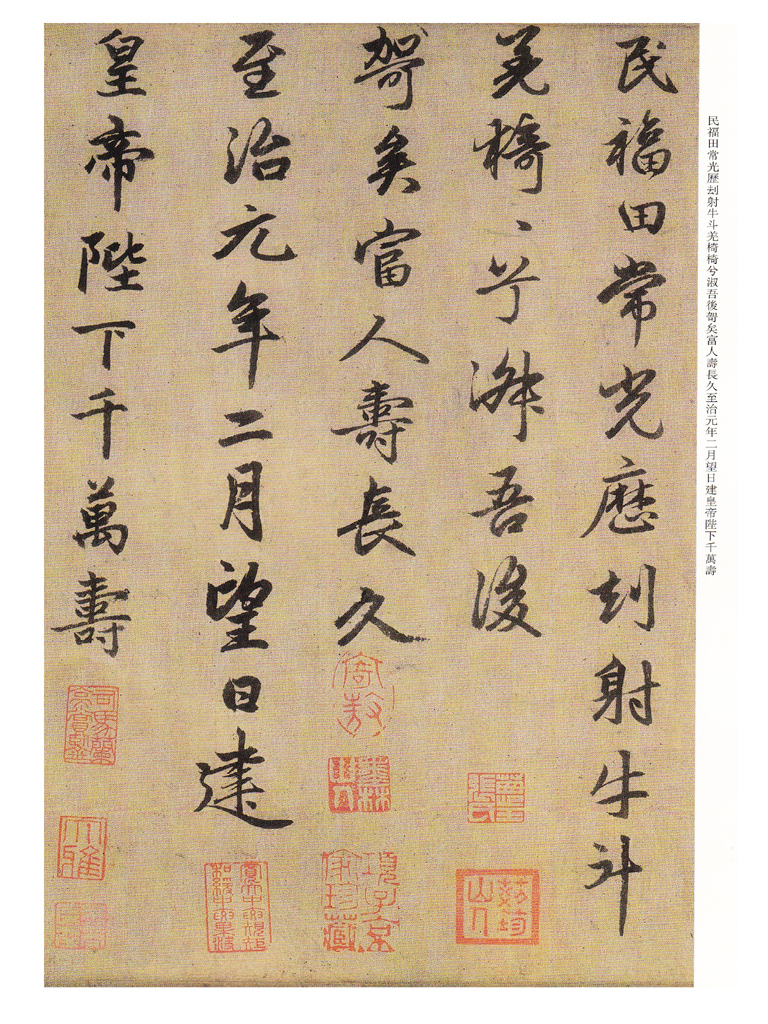 民福田常光歷刦射牛斗羌椅椅兮淑吾後哿矣富人壽長久至治元年二月望日建皇帝陛下千萬壽
民福田常光歷刦射牛斗
羌椅〻兮淑吾後
哿矣富人壽長久
墨林山人
項子京家珍藏
至治元年二月望日建
皇帝陛下千萬壽
大雅